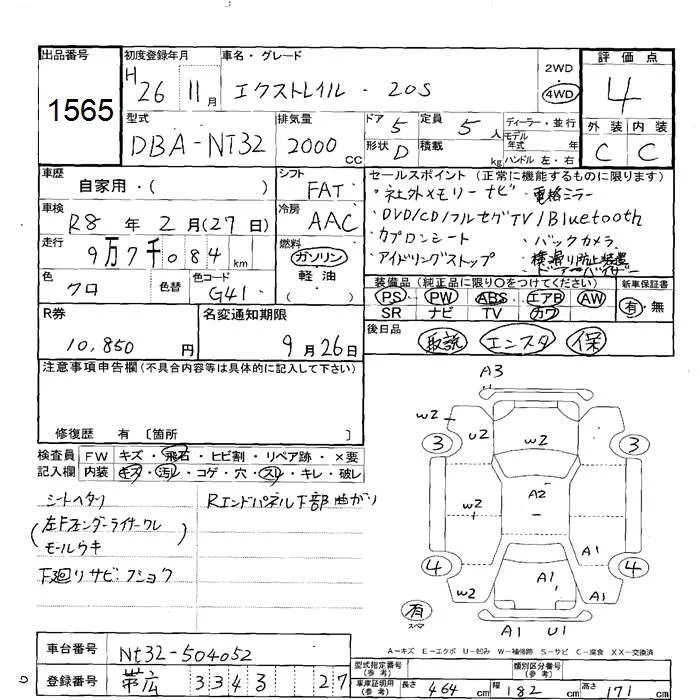 出品番号
1565
初度登録年月
H 26 11月
車名・グレード
エクストレイル・20S
2WD
4WD
評価点
4
型式
DBA-NT32
排気量
2000 CC
ドア 5
形状 D
定員 5 人
積載 kg
ディーラー・並行
モデル年式 年
ハンドル 左・右
外装 内装
C C
車歴
自家用・( )
シフト
FAT
車検
R8 年 2 月(27 日)
冷房
AAC
走行
9万7千084 km
燃料
ガソリン
軽油
( )
色
クロ
色替
色コード
G41
セールスポイント (正常に機能するものに限ります)
・社外メモリーナビ ・電格ミラー
・DVD/CD/フルセグTV/Bluetooth
・カプロンシート ・バックカメラ
・アイドリングストップ ・横滑り防止装置
・ドアーバイザー
装備品 (純正品に限り〇をつけてください)
PS PW ABS エアB AW
SR ナビ TV カワ
新車保証書
有・無
R券
10,850 円
名変通知期限
9月26日
後日品
取説 エンスタ 保
注意事項申告欄(不具合内容等は具体的に記入して下さい)
修復歴 有 〔箇所 〕
検査員記入欄
FW キズ・飛石・ヒビ割・リペア跡・×要
内装 キズ・汚レ・コゲ・穴・スレ・キレ・破レ
シートヘタリ
Rエンドパネル下部曲がり
(左Fフェンダーライナーワレ
モールウキ)
下廻りサビ・フショク
A3
W2
U2
W2
3
3
A2
W2
W2
A1
4
4
W2
A1
A1
有
スペア
A1 U1
A-キズ E-エクボ U-凹み W-補修跡 S-サビ C-腐食 XX-交換済
車台番号
Nt32-504052
登録番号
帯広 3343 27
型式指定番号
(参考)
類別区分番号
(参考)
車庫証明用
(参考)
長さ 464 cm
幅 182 cm
高さ 171 cm